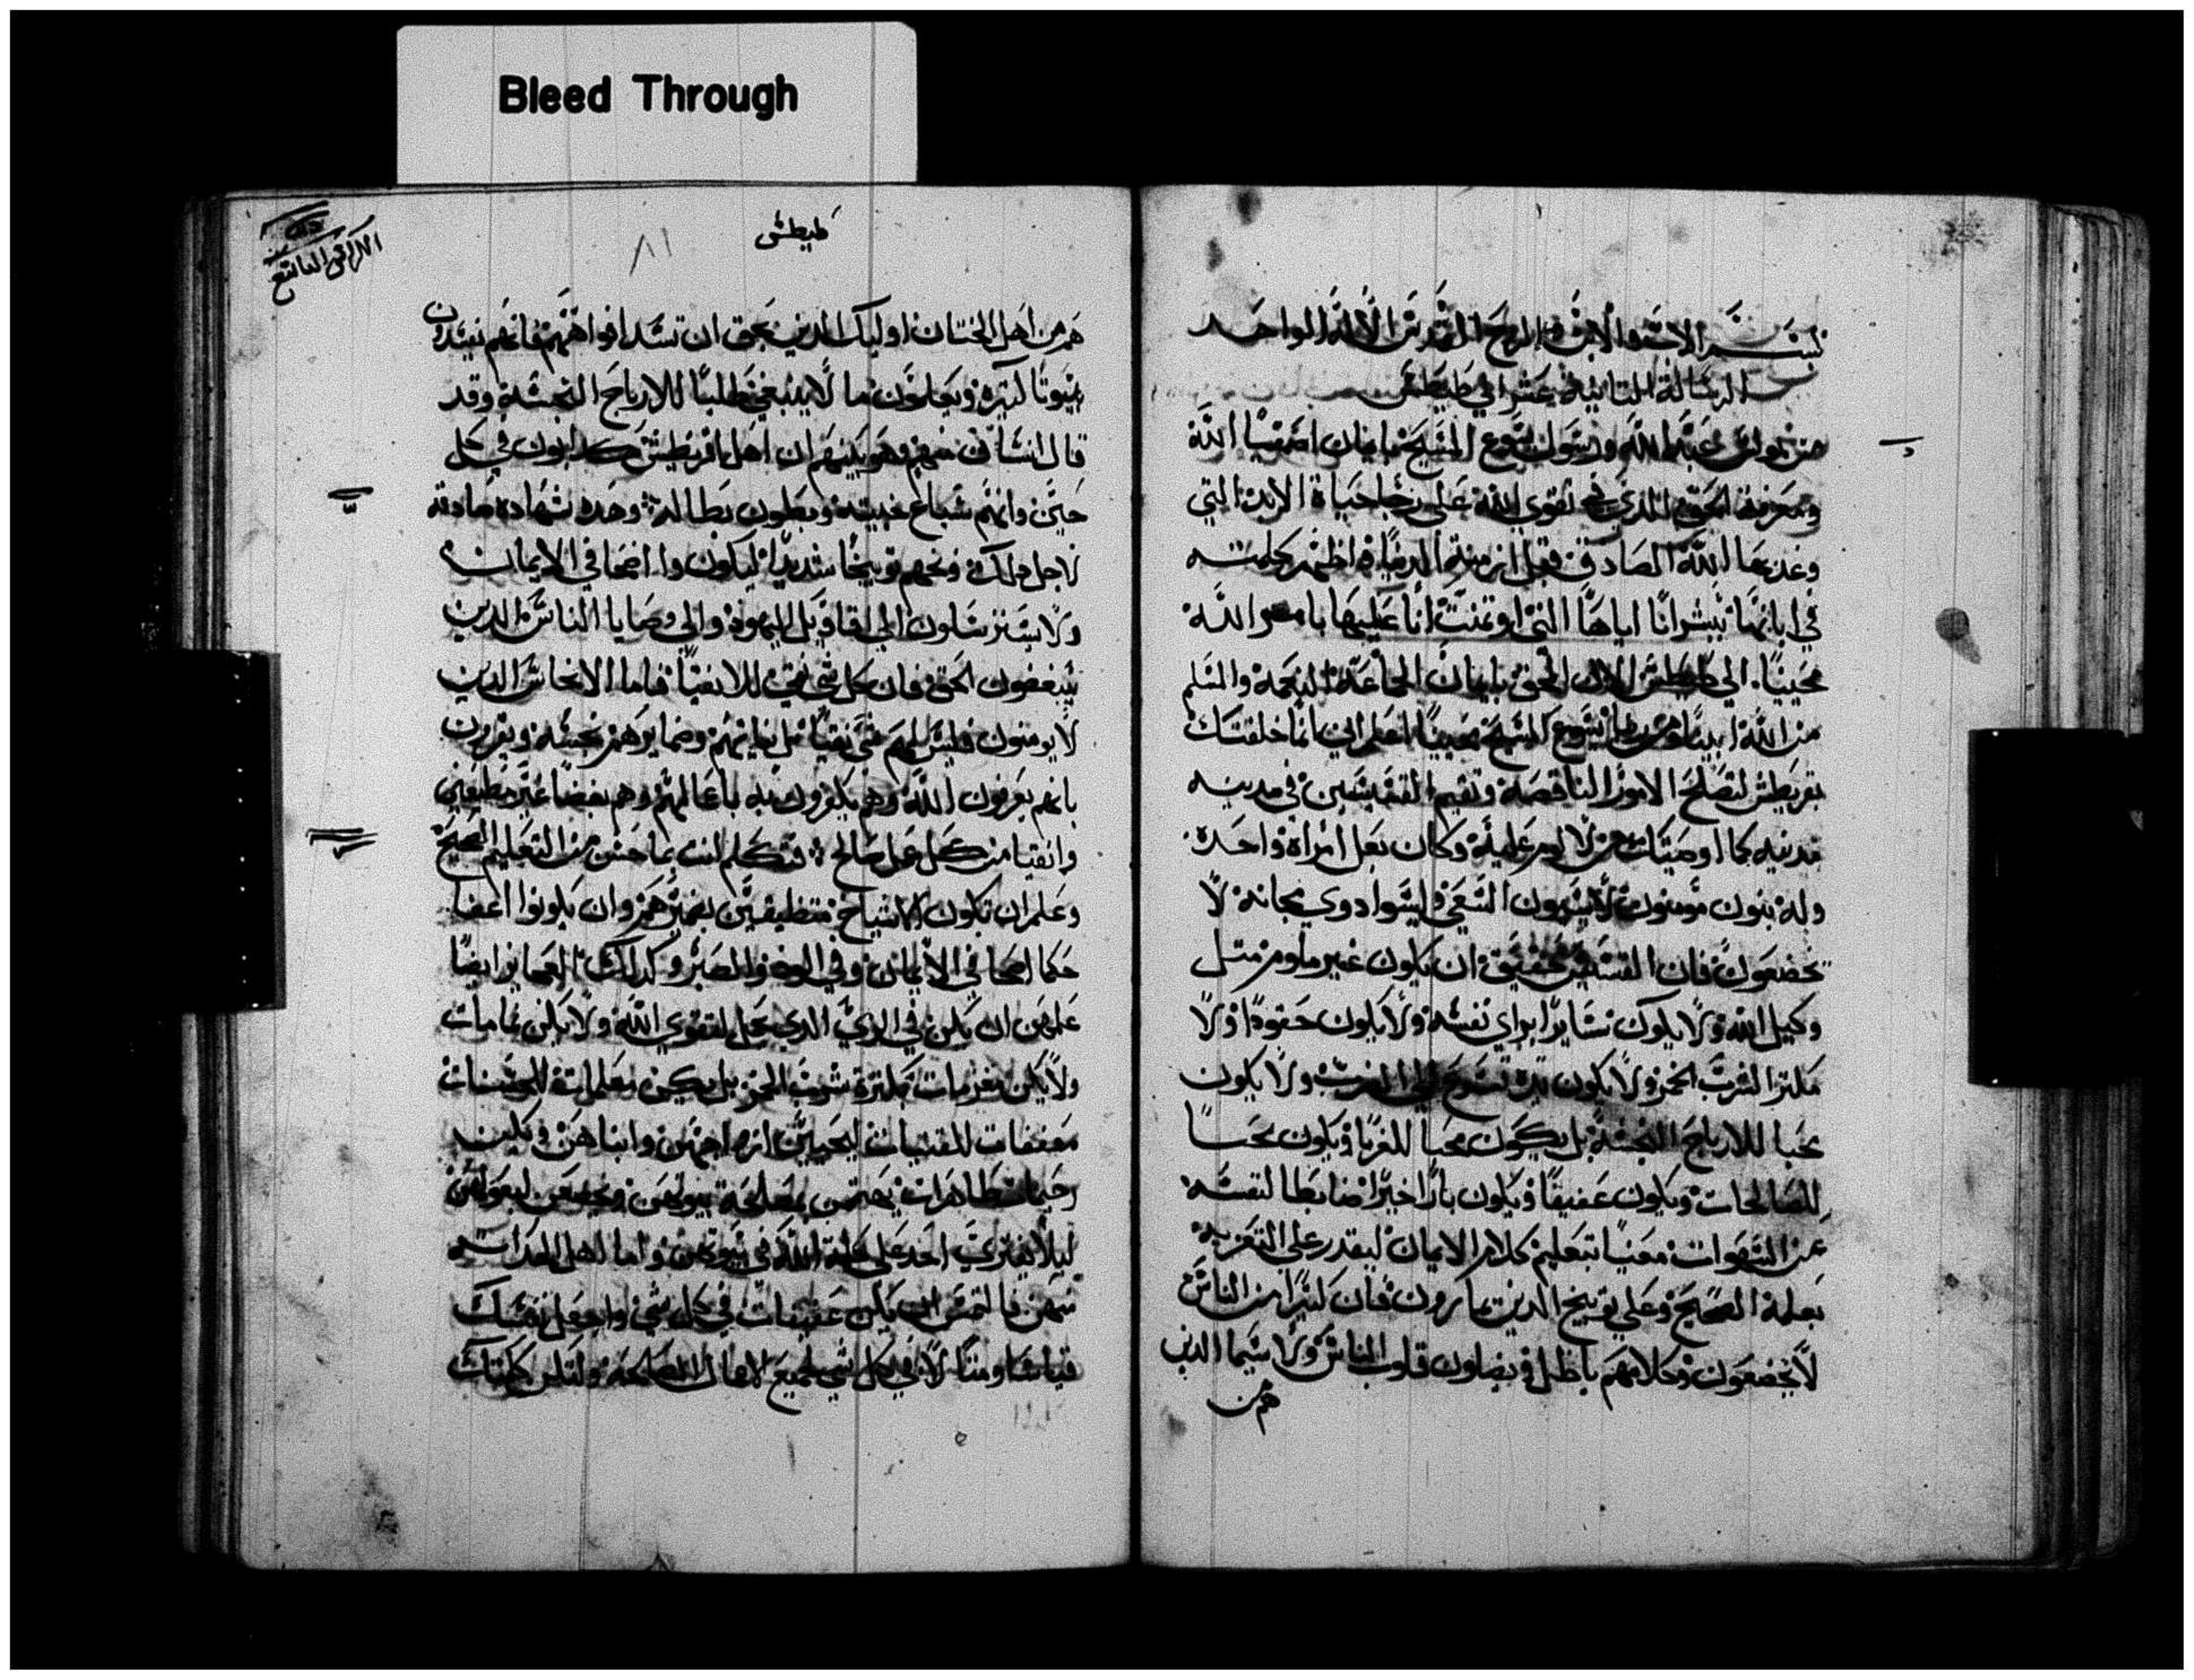 Bleed Through
بسم الاب والابن والروح القدس الاله الواحد
الرساله الثانيه عشر الي طيطس
من بولس عبد الله ورسول يسوع المسيح بايمان اصفيا الله
ومعرفة الحق الذي في تقوي الله علي رجا حياة الابد التي
وعد بها الله الصادق قبل ازمنة الدنيا واظهر كلمته
في ابانها ببشرانا اياها التي اوتمنت انا عليها بامر الله
محيينا. الي طيطس الابن الحق بايمان الجماعة النعمة والسلم
من الله ابينا ومن ربنا يسوع المسيح محيينا اعلم اني انما خلفتك
بقريطس لتصلح الامور الناقصه وتقيم القسيسين في مدينه
مدينه كما اوصيتك من لا لوم عليه وكان بعل امراة واحدة
وله بنون مومنون لا يشتمون وليسوا دوي مجانه لا
يخضعون فان القسيس حقيق ان يكون غير ملوم مثل
وكيل الله ولا يكون سايرا براي نفسه ولا يكون حقودا ولا
مكثرا لشرب الخمر ولا يكون يده تسرع الي الضرب ولا يكون
محبا للارباح النجسة بل يكون محبا للغربا ويكون محبا
للصالحات ويكون عفيفا ويكون بارا خيرا ضابطا لنفسه
عن الشهوات معنيا بتعليم كلام الايمان ليقدر علي التعزيه
بعلمه الصحيح وعلي توبيخ الذين يمارون فان كثيرا من الناس
لا يخضعون وكلامهم باطل ويضلون قلوب الناس ولا سيما الدين
هم من
طيطس
٨١
هم من اهل الختان اوليك الدين يحق ان تسد افواههم فانهم يفسدون
بيوتا كثيرة ويعلمون ما لا ينبغي طلبا للارباح النجسة وقد
قال انسان منهم وهو نبيهم ان اهل اقريطش كدابون في كل
حين وانهم سباع خبيثه وبطون بطاله وهده شهاده صادقه
لاجل دلك وبخهم توبيخا شديدا ليكونوا اصحا في الايمان
ولا يسترسلون الي اقاويل اليهود والي وصايا الناس الدين
يبغضون الحق فان كل شي نقي للانقيا فاما الانجاس الدين
لا يومنون فليس لهم شي نقيا بل نياتهم وضمايرهم نجسه ويقرون
بانهم يعرفون الله وهم يكفرون به باعمالهم وهم بغضا غير مطيعين
وانقيا من كل عمل صالح فتكلم انت بما حسن من التعليم الصحيح
وعلم ان تكون الاشياخ متيقظين بضميرهم وان يكونوا اعفا
حكما اصحا في الايمان وفي الود والصبر وكدلك العجايز ايضا
علمهن ان يكن في الزي الدي يحل لتقوي الله ولا يكن نمامات
ولا يكن مغرمات بكثرة شرب الخمر بل يكن معلمات للحسنات
معففات للفتيات ليحببن ازواجهن وابناهن ويكن
رحيمات طاهرات يهتمن بمصلحة بيوتهن ويخضعن لبعولتهن
ليلا يفتري احد علي كلمة الله واما اهل الحداثه
منهن فالتمس ان يكن عفيفات في كل شي واجعل نفسك
قياسا ومثالا في كل شي لجميع الافعال الصالحه ولتكن كلمتك